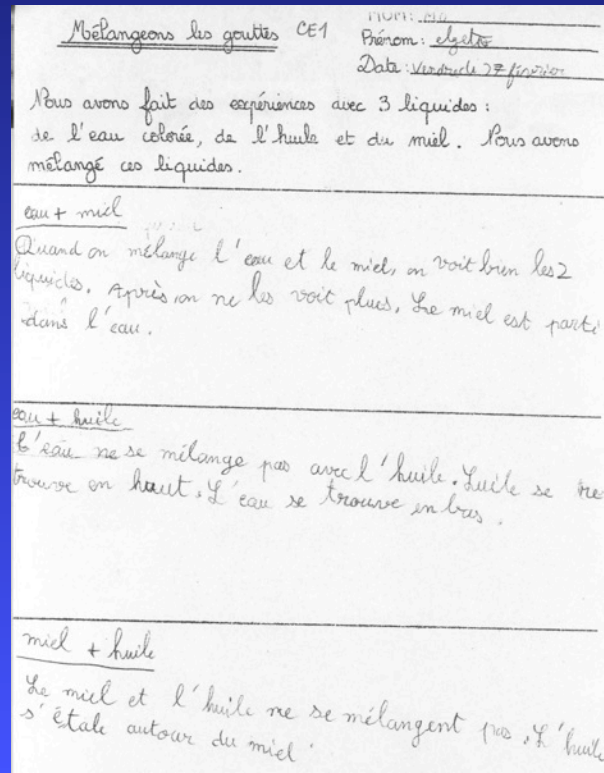 Mélangeons les gouttes CE1
NOM:
Prénom:
Date: Vendredi 27 février
Nous avons fait des expériences avec 3 liquides :
de l'eau colorée, de l'huile et du miel. Nous avons
mélangé ces liquides.
eau + miel
Quand on mélange l'eau et le miel, on voit bien les 2
liquides. Après, on ne les voit plus. Le miel est parti
dans l'eau.
eau + huile
L'eau ne se mélange pas avec l'huile. Luile se
trouve en haut. L'eau se trouve en bas.
miel + huile
Le miel et l'huile ne se mélangent pas. L'huile
s'étale autour du miel.